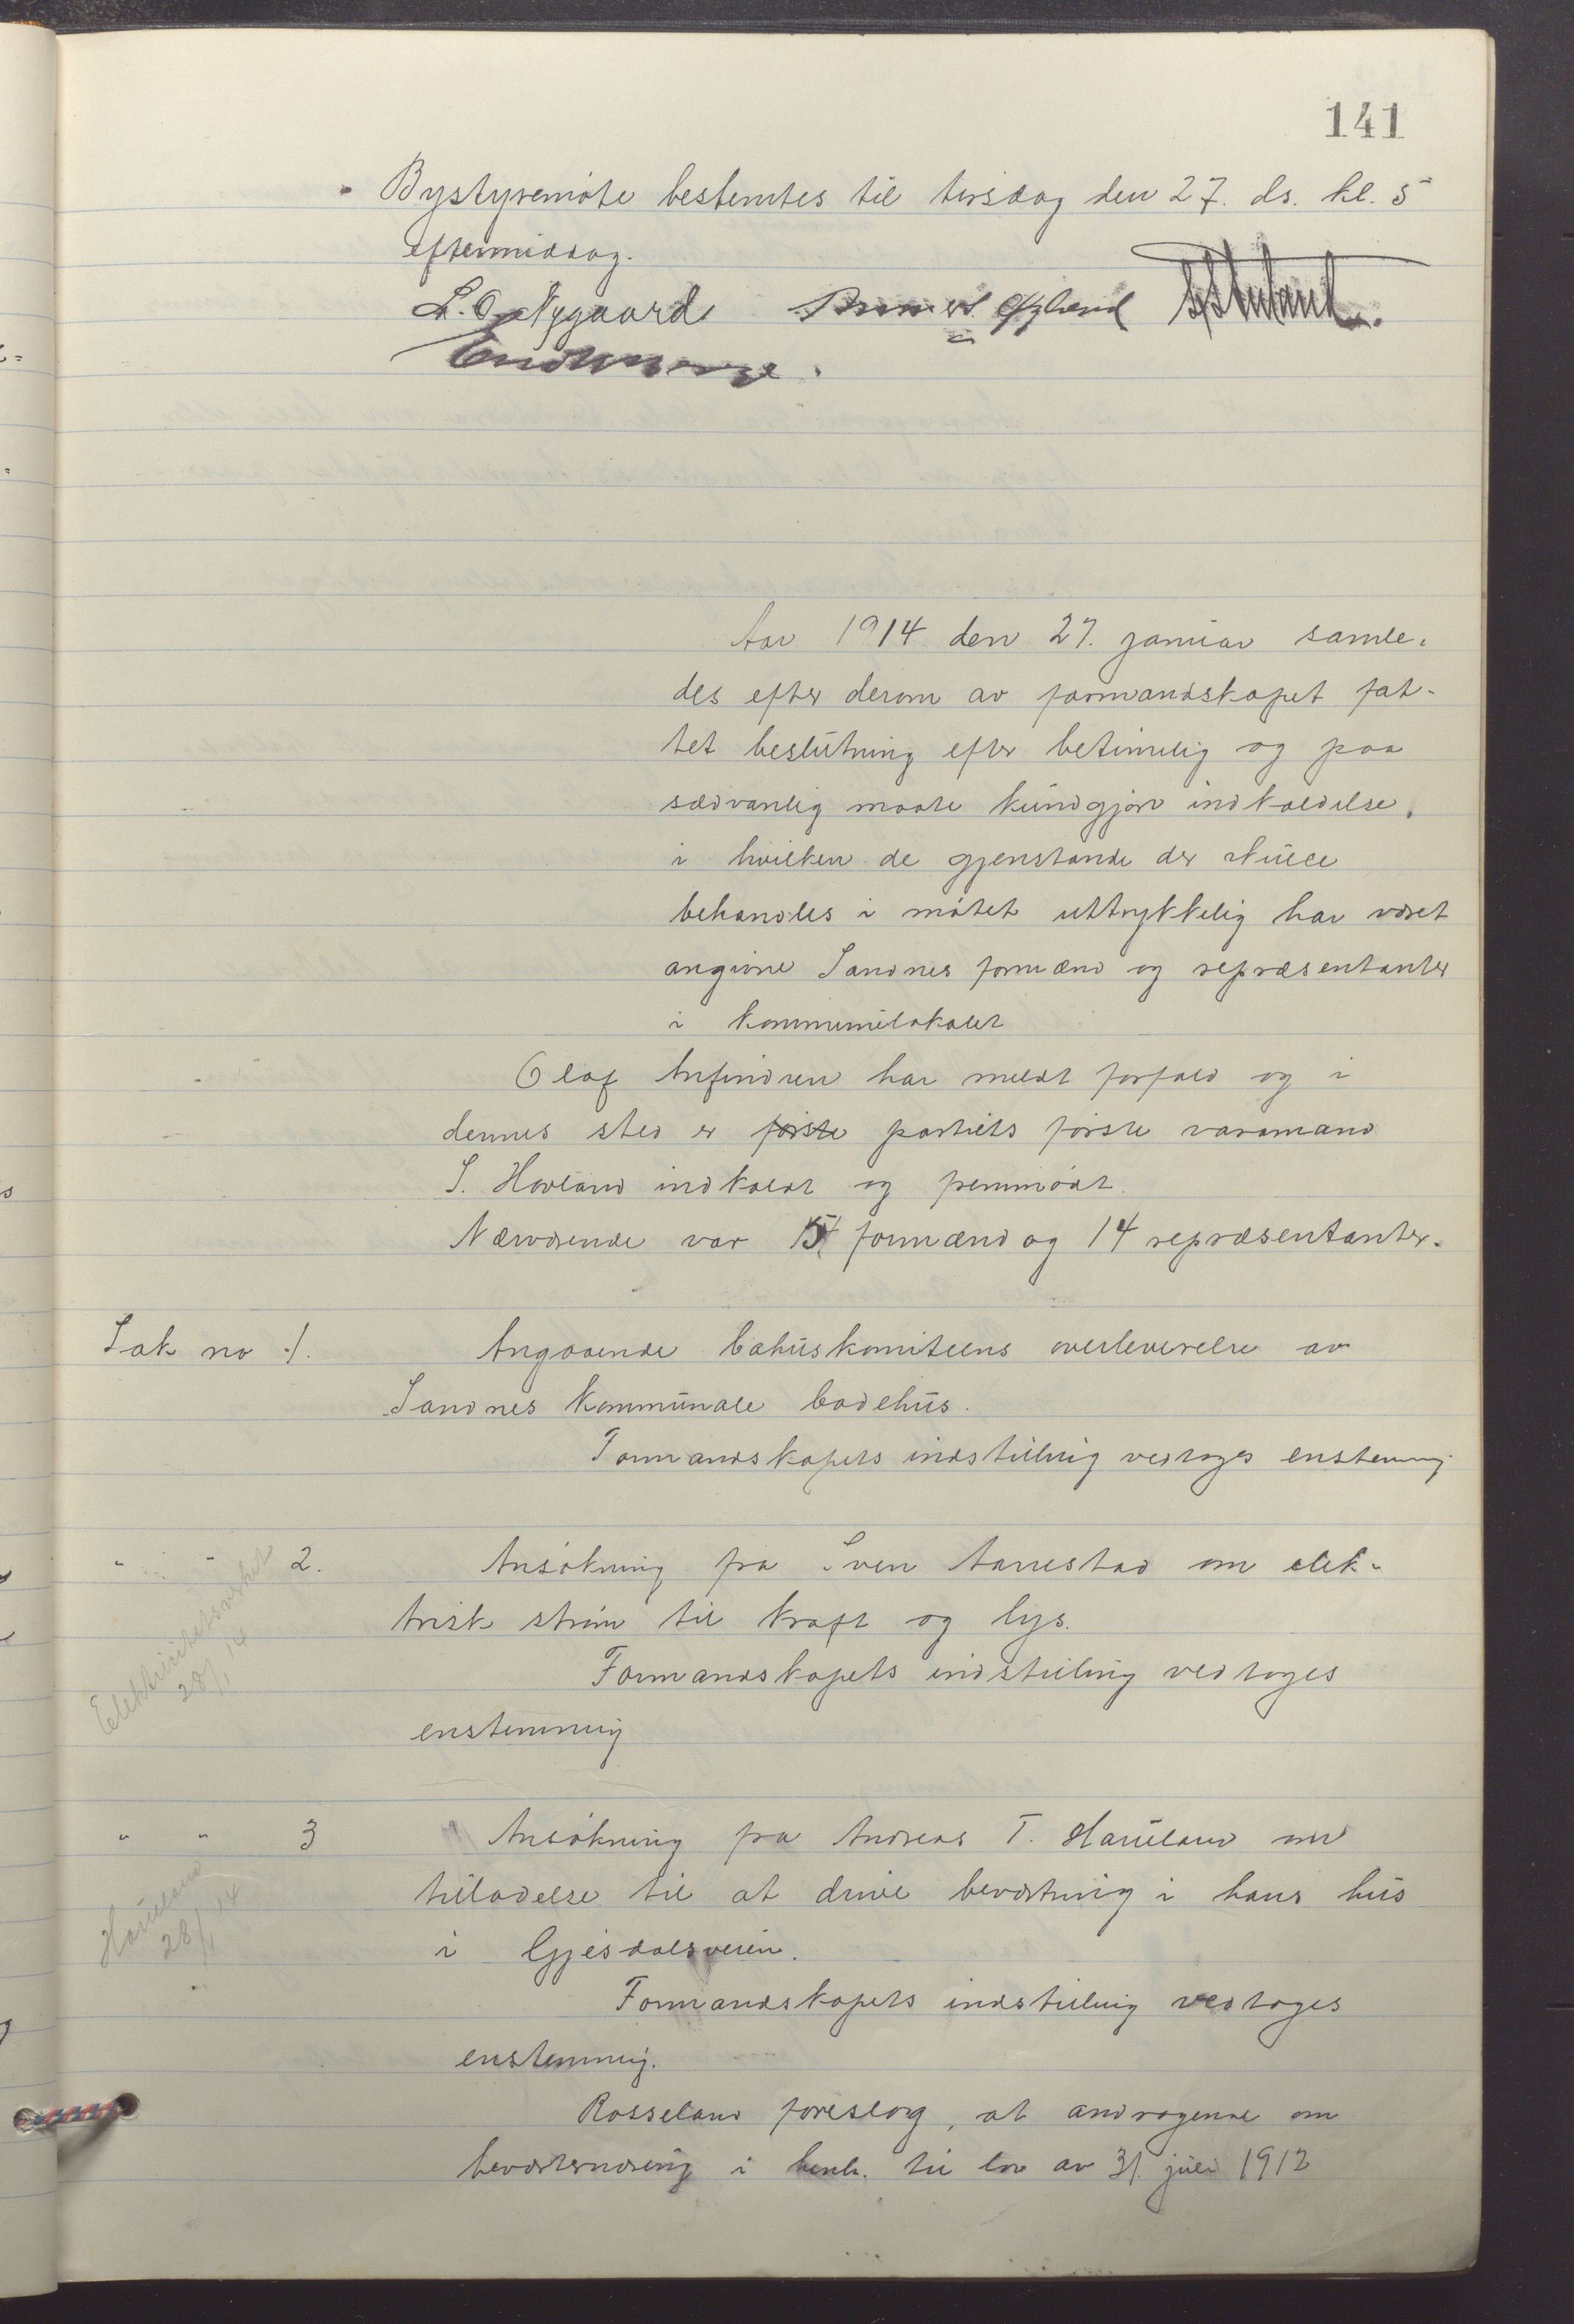 141
Bystyremøte bestemtes til tirsdag den 27. ds. kl. 5
eftermiddag.
L. O. Nygaard
Aar 1914 den 27. januar samle-
des efter derom av formandskapet fat-
tet beslutning efter betimelig og paa
sædvanlig maate kundgjort indkaldelse,
i hvilken de gjenstande der skulle
behandles i møtet uttrykkelig har været
angivne Sandnes formænd og repræsentanter
i kommunelokalet
Olaf Anfindsen har meldt forfald og i
dennes sted er første partiets første varamand
S. Hovland indkaldt og fremmødt.
Nærværende var 5 formænd og 14 repræsentanter.
Sak no 1. Angaaende bahuskomiteens overleverelse av
Sandnes kommunale badehus.
Formandskapets indstilling vedtoges enstemmig
" " 2. Ansøkning fra Sven Aarrestad om elek-
trisk strøm til kraft og lys.
Elektricitetsverket
28/1 14
Formandskapets indstilling vedtoges
enstemmig
" " 3 Ansøkning fra Andreas T. Haueland om
tilladelse til at drive bevertning i hans hus
i Gjesdalsveien.
Haueland
28/1 14
Formandskapets indstilling vedtoges
enstemmig.
Rosseland foreslog, at andragende om
beværternæring i henh. til lov av 31. juli 1912